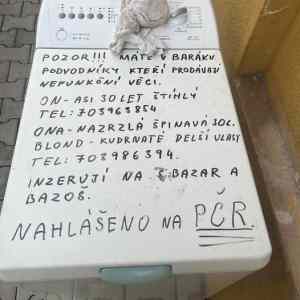 POZOR!!! MÁTE V BARÁKU
PODVODNÍKY KTEŘÍ PRODÁVAJÍ
NEFUNKČNÍ VĚCI.
ON - ASI 30 LET ŠTÍHLÝ
TEL: 703963854
ONA - NAZRZLÁ ŠPINAVÁ
BLOND - KUDRNATÉ DELŠÍ VLASY
TEL: 703986394.
INZERUJÍ NA S BAZAR A
BAZOŠ.
NAHLÁŠENO NA PČR.